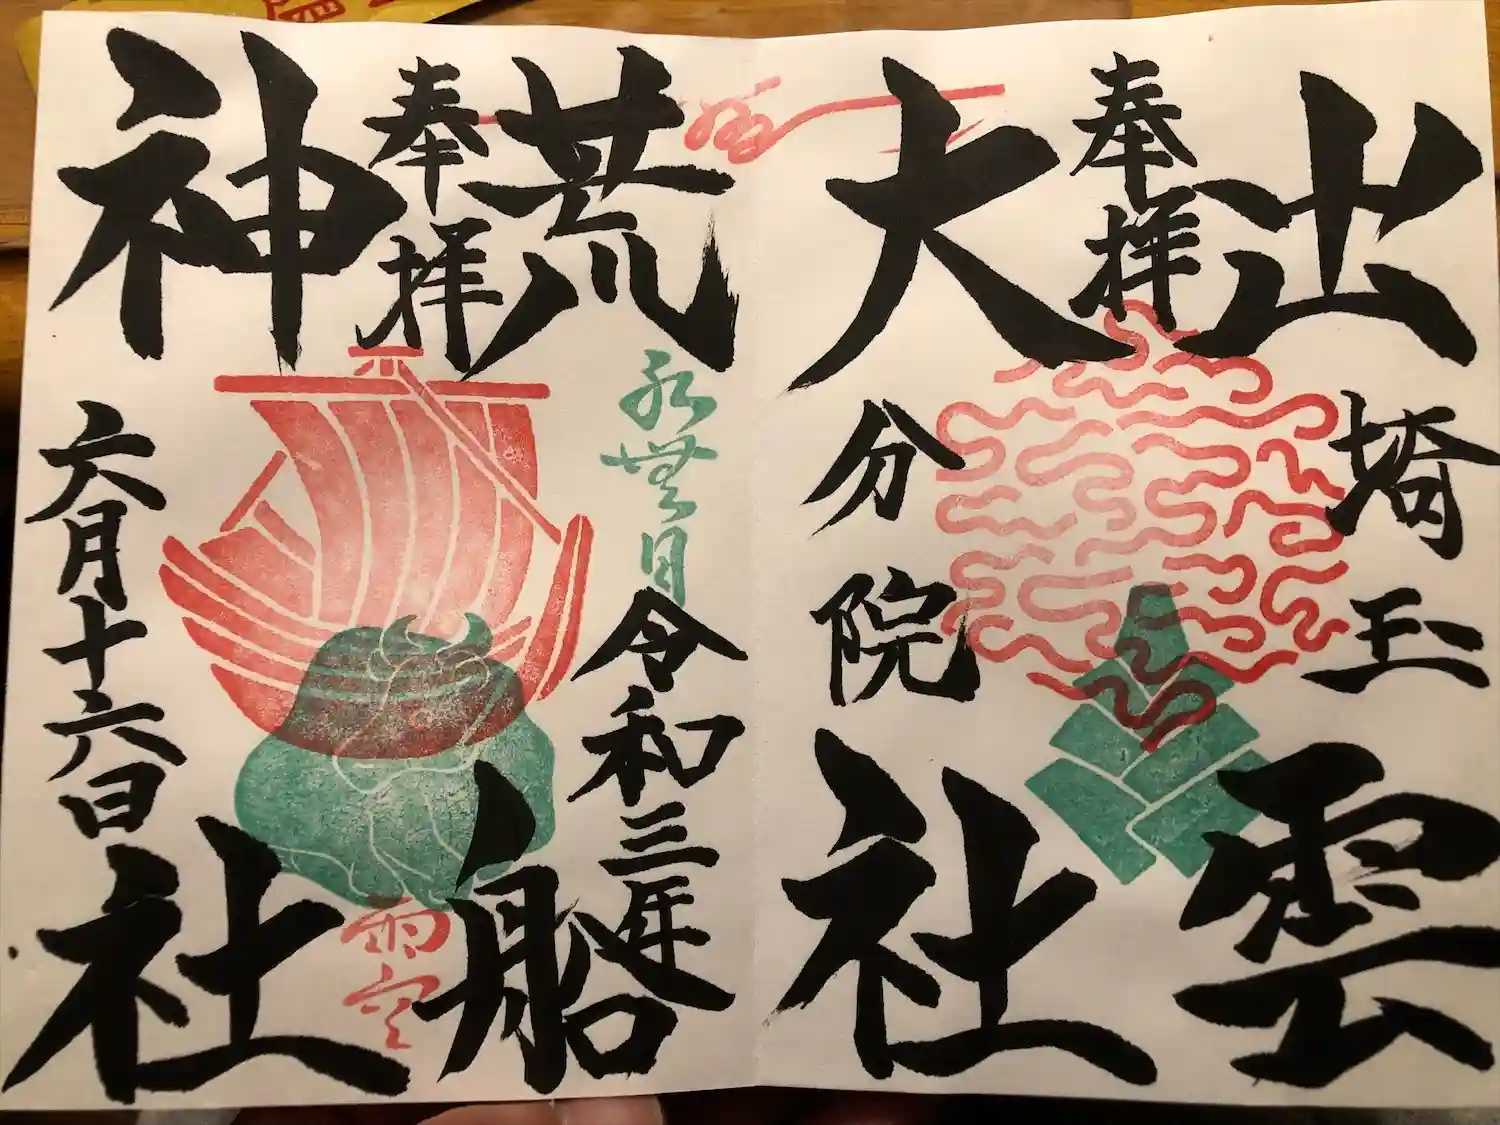 奉拝
出雲
大社
埼玉
分院
奉拝
荒船
神社
水無月
令和三年
六月十六日
雨空